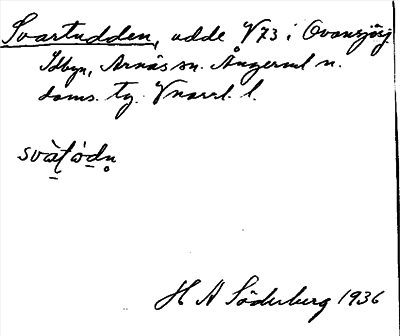 Svartudden, udde V73 i Ovansjö, 
Idbyn, Arnäs sn. Ångerml n.
doms. tg. Vnorrl. l.
svàt̠ód̠n̥
H A Söderberg 1936